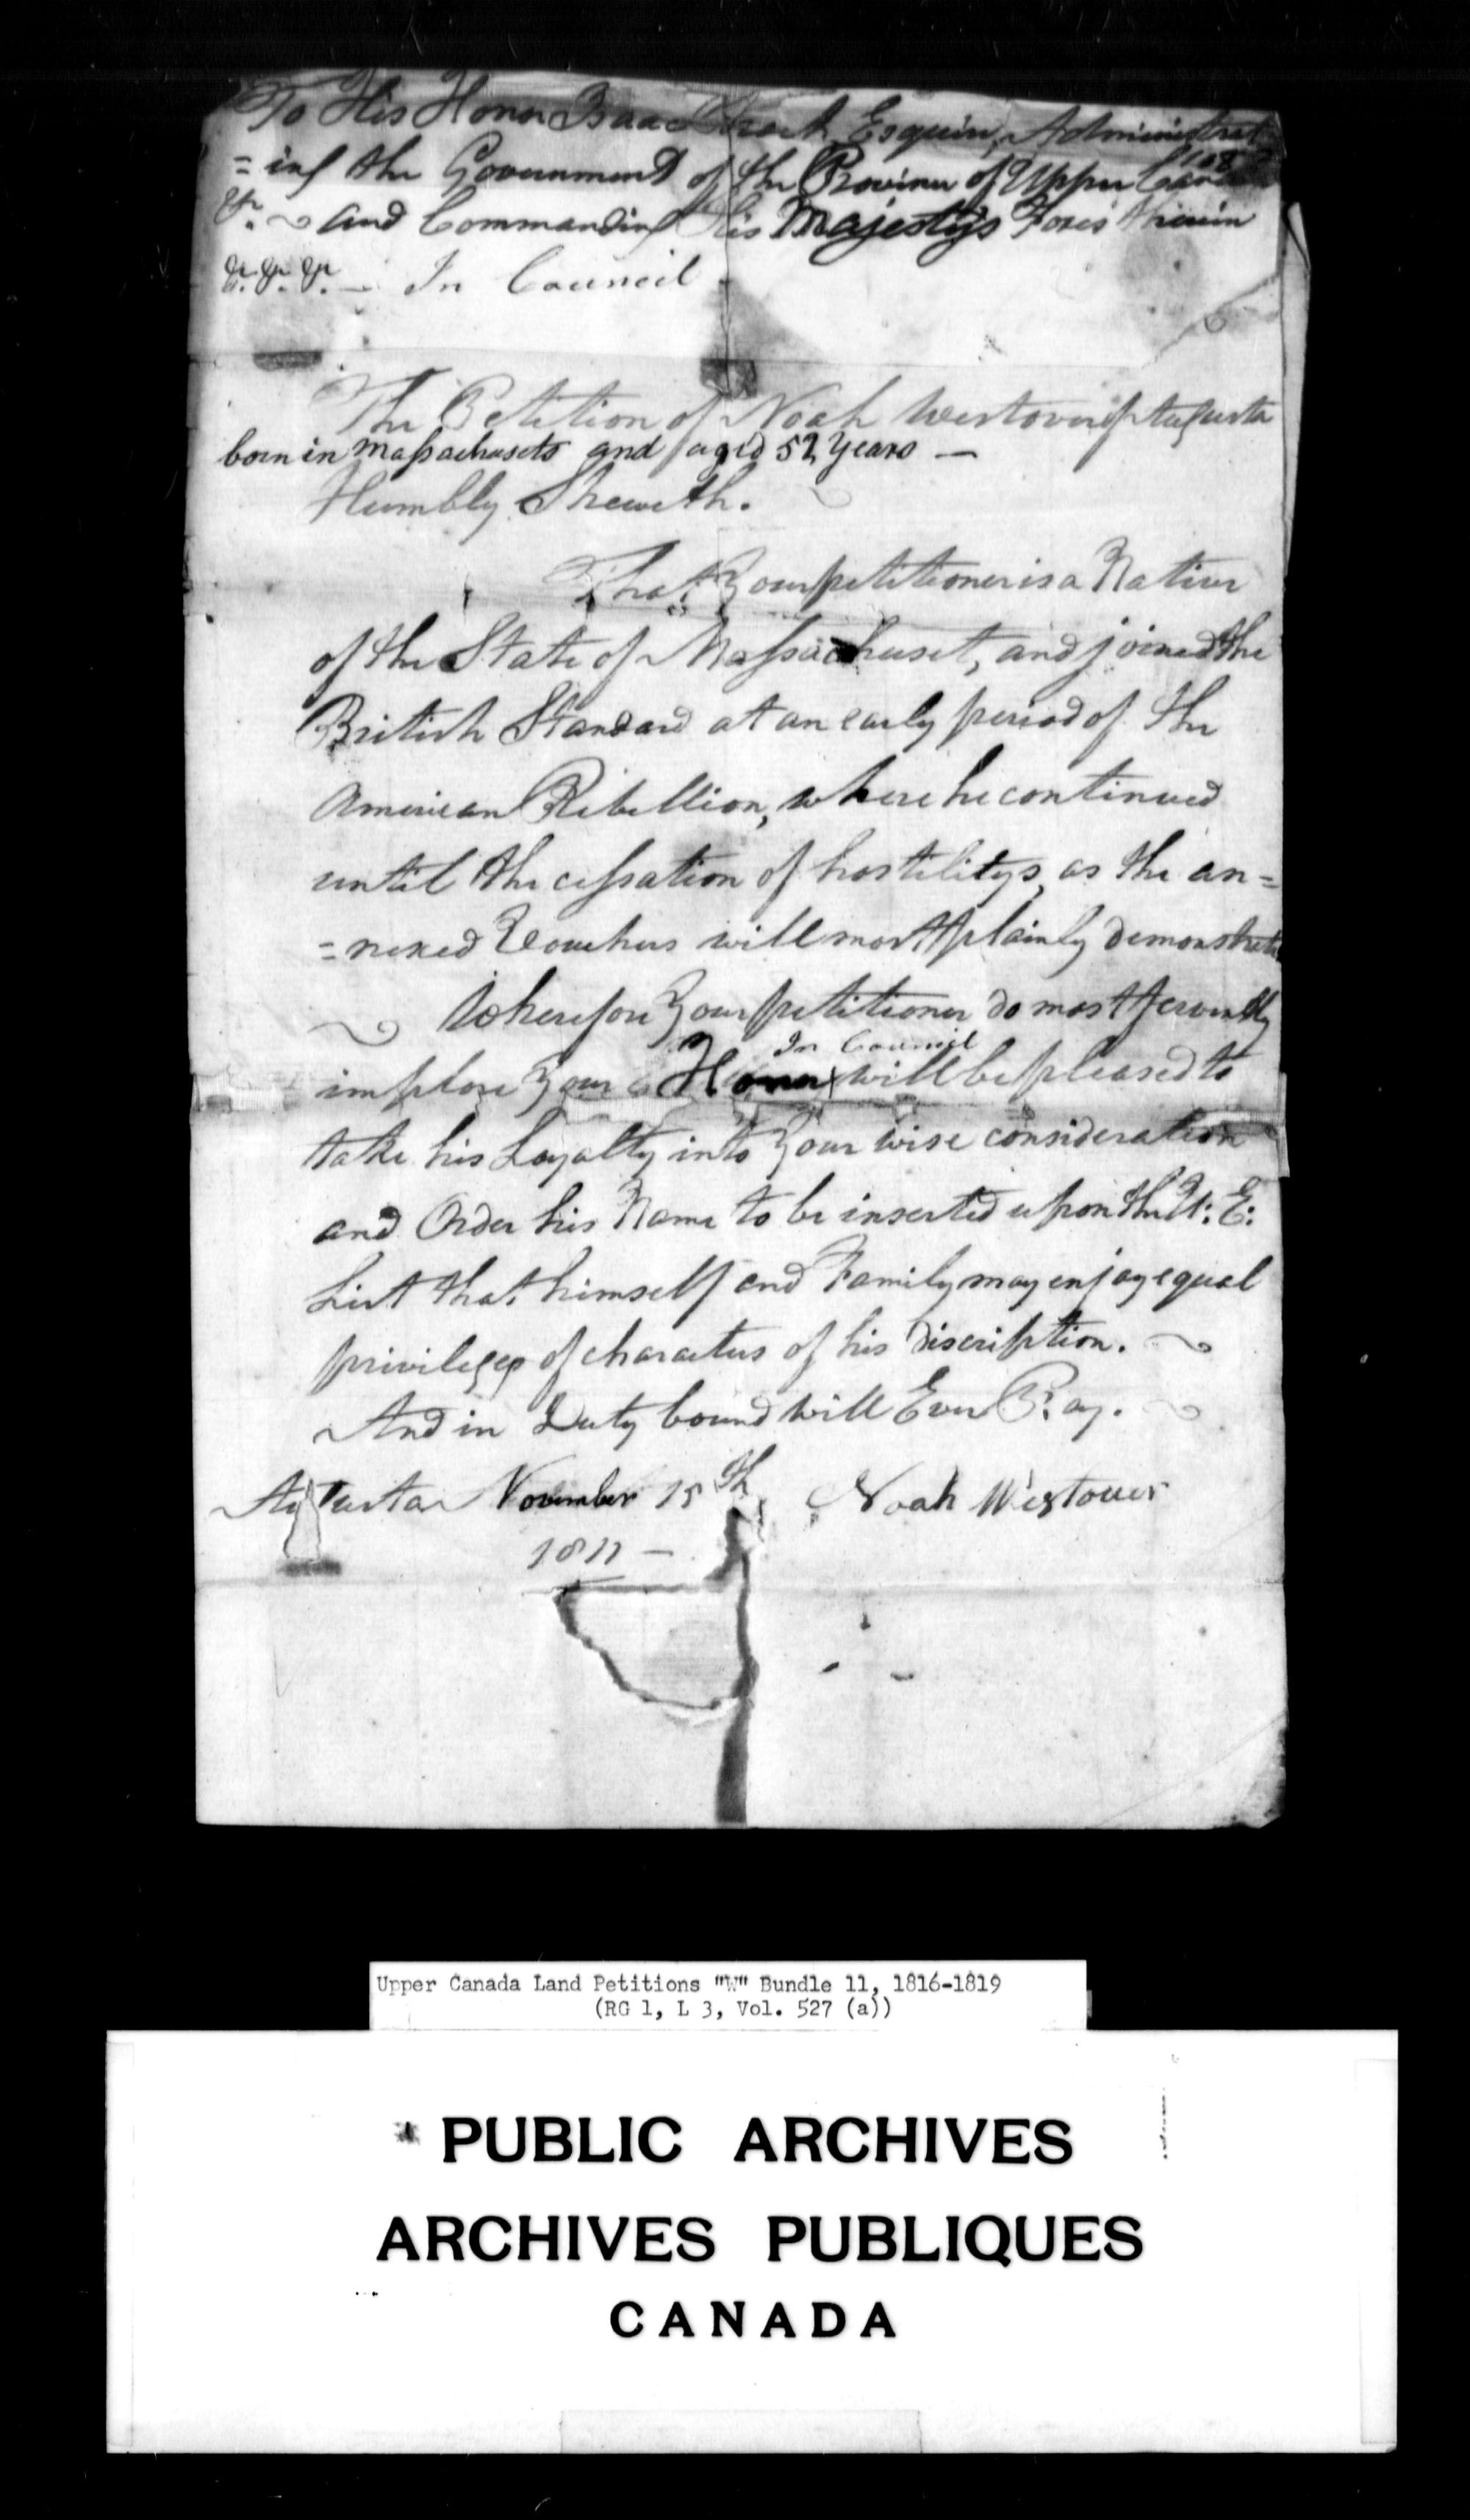 To His Honor Isaac Brock Esquire, Administrat
=ing the Government of the Province of Upper Canada
&c. and Commanding His Majestys Forces therein
&c. &c. &c. — In Council
The Petition of Noah Westover of Augusta
born in Massachusets and aged 52 Years —
Humbly Sheweth.
That Your petitioner is a Native
of the State of Massachuset, and joined the
British Standard at an early period of the
American Rebellion, where he continued
until the cessation of hostilitys, as the an=
=nexed Vouchers will most plainly demonstrate
Wherefore Your petitioner do most fervently
In Council
implore Your Honor will be pleased to
take his Loyalty into Your wise consideration
and Order his Name to be inserted upon the U: E:
List that himself and Family may enjoy equal
privileges of characters of his discription.
And in Duty bound will Ever Pray.
Augusta November 15th Noah Westover
1811 —
Upper Canada Land Petitions "W" Bundle 11, 1816-1819
(RG 1, L 3, Vol. 527 (a))
PUBLIC ARCHIVES
ARCHIVES PUBLIQUES
CANADA